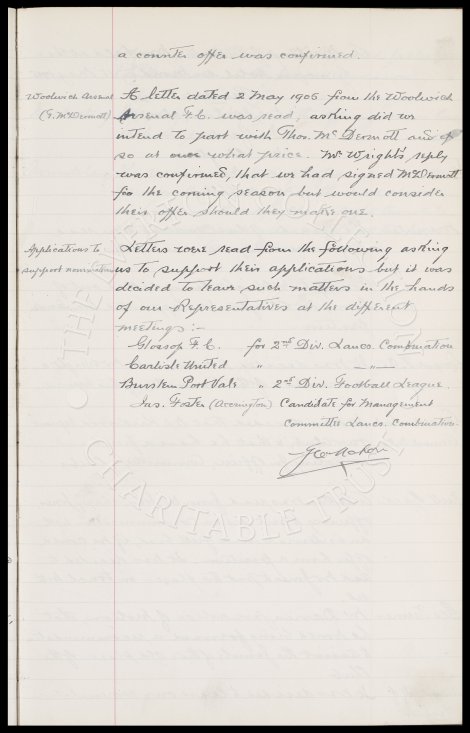 a counter offer was confirmed.
Woolwich Arsenal
(T. McDermott)
A letter dated 2 May 1906 from the Woolwich
Arsenal F.C. was read, asking did we
intend to part with Thos. McDermott and if
so at what price. Mr Wright's reply
was confirmed, that we had signed McDermott
for the coming season but would consider
their offer should they make one.
Applications to
support nominations
Letters were read from the following asking
us to support their applications but it was
decided to leave such matters in the hands
of our Representatives at the different
meetings:-
Glossop F.C. for 2nd Div. Lancs Combination
Carlisle United " —"—
Burslem Port Vale " 2nd Div. Football League.
Jas. Foster (Accrington) Candidate for Management
Committee Lancs. Combination.
THE EVERTON COLLECTION
CHARITABLE TRUST